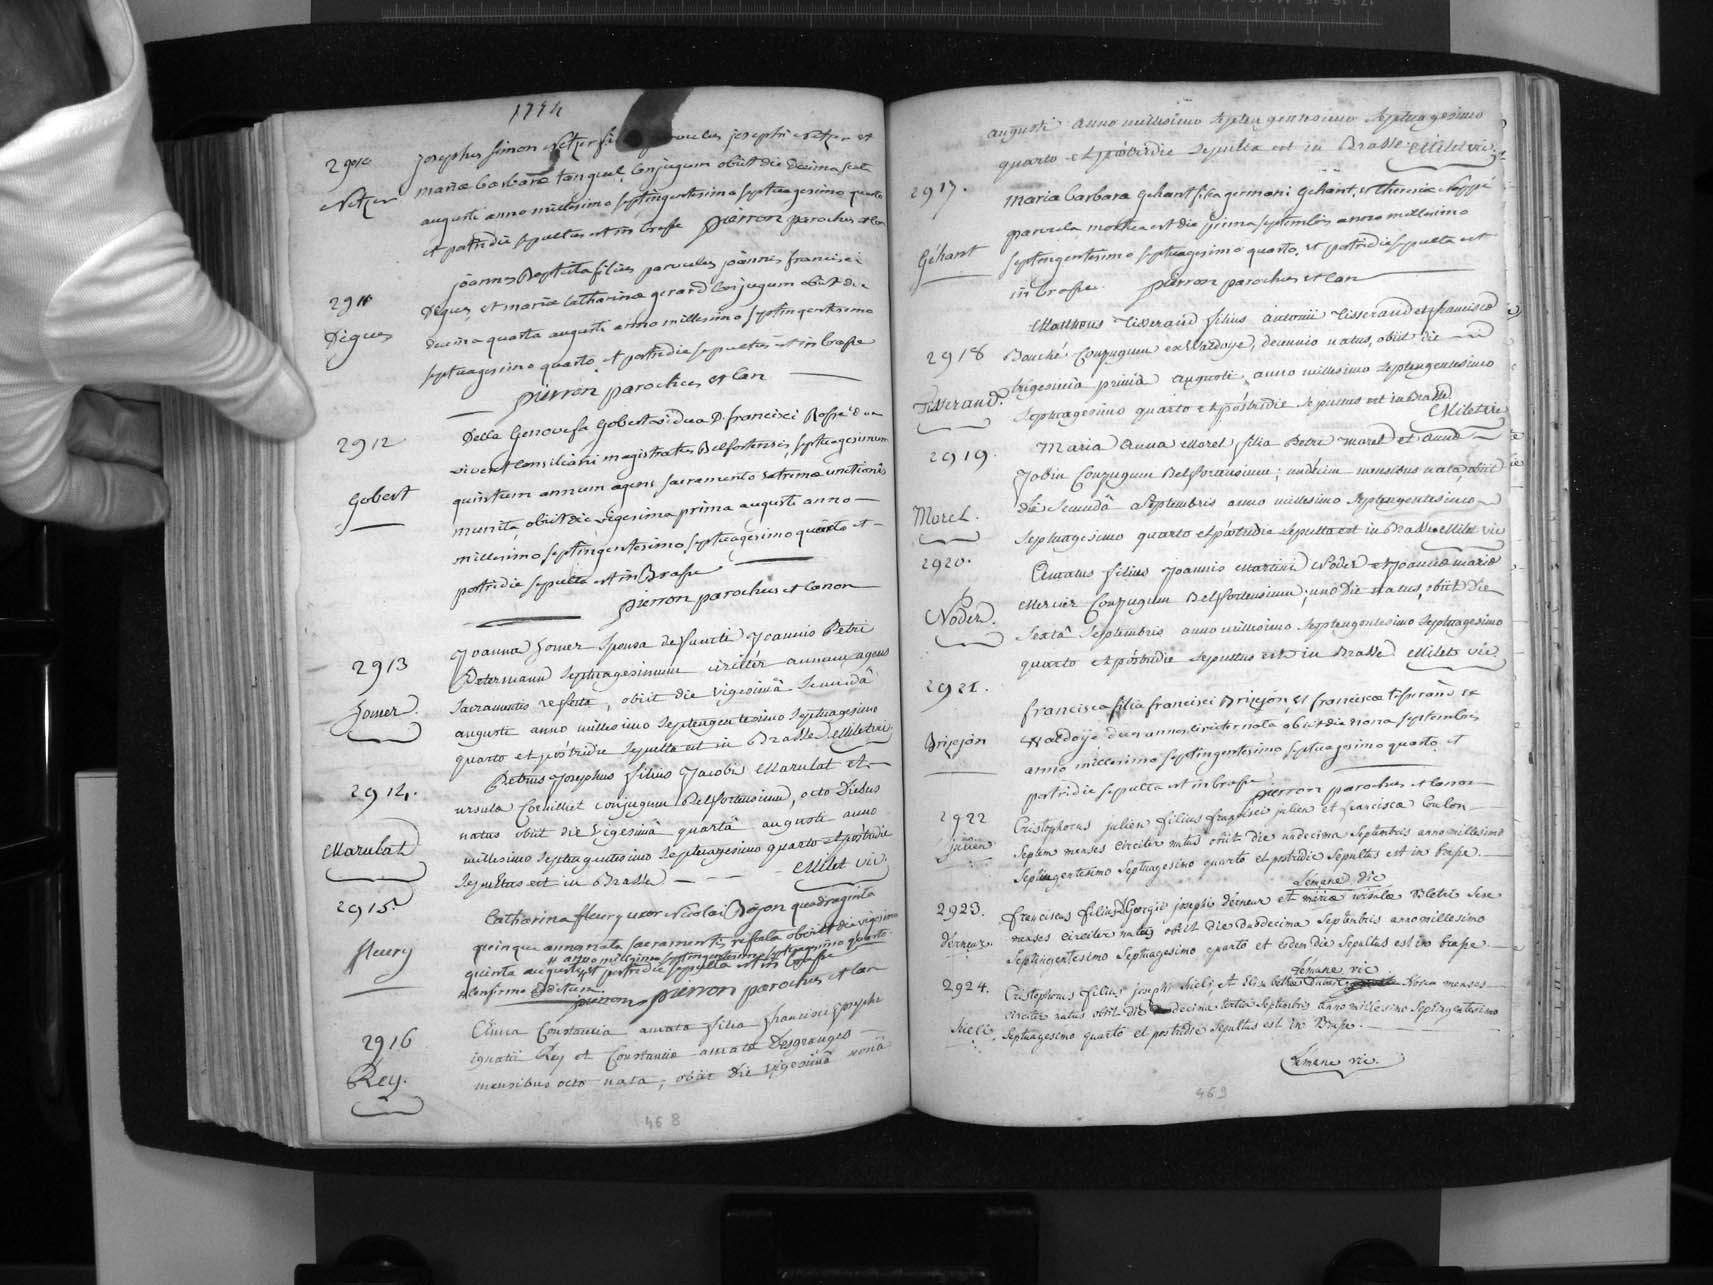 1774
2910
Netzer
josephus simon Netzer filius parvulus josephi Netzer et
mariæ barbaræ conjugum obiit die decima
augusti anno millesimo septingentesimo septuagesimo quarto
et postridie sepultus est in brasse pierron parochus et can
2911
Digues
joannes Baptista filius parvulus joannis francisci
Digues et mariæ Catharinæ gerard conjugum obiit die
decima quarta augusti anno millesimo septingentesimo
septuagesimo quarto et postridie sepultus est in brasse
pierron parochus et Can
2912
Gobert
Della Genovefa Gobert vidua D. francisci Rossé dum
viveret Consiliarii magistratus Belfortensis, septuagesimum
quintum annum agens sacramento extremæ unctionis
munita, obiit die vigesima prima augusti anno
millesimo septingentesimo septuagesimo quarto et
postridie sepulta est in Brasse
pierron parochus et Canon
2913
Somer
Joanna Somer Sponsa defuncti Joannis Petri
Determann Septuagesimum circiter annum agens
Sacramentis refecta, obiit die vigesimâ secundâ
augusti anno millesimo septengentesimo septuagesimo
quarto et postridie sepulta est in Brasse Milet vic
2914.
Marulat
Petrus Josephus filius Jacobi Marulat et
ursulæ conjugum Belfortensium, octo diebus
natus obiit die vigesimâ quartâ augusti anno
millesimo septengentesimo septuagesimo quarto et postridie
sepultus est in Brasse Milet vic.
2915.
fleury
Catharina fleury uxor Nicolai Boyon quadraginta
quinque annos nata sacramentis refecta obiit die vigesima
# anno millesimo septingentesimo septuagesimo quarto
quinta augusti # et postridie sepulta est in brasse
# confirmo additum
pierron pierron parochus et can
2916
Rey.
Anna Constancia amata filia Francisci Josephi
ignatii Rey et Constanciæ amatæ Desgranges
mensibus octo nata, obiit die vigesimâ nonâ
468
augusti anno millesimo septengentesimo septuagesimo
quarto et postridie sepulta est in Brasse Milet vic.
2917.
Géhant
Maria barbara Gehant filia germani Géhant, et theresiæ
parvula, mortua est die prima septembris anno millesimo
septingentesimo septuagesimo quarto, et postridie sepulta est
in brasse. pierron parochus et Can
2918
Tisserand.
Matthæus Tisserand filius antonii Tisserand et franciscæ
Bouché Conjugum ex Valdoye, decennio natus, obiit die
trigesimâ primâ augusti anno millesimo septengentesimo
septuagesimo quarto et postridie sepultus est in Brasse
Milet vic
2919.
Morel.
Maria Anna Morel filia Petri Morel et Annæ
Jobin Conjugum Belfortensium; undecim mensibus nata, obiit
die secundâ septembris anno millesimo septengentesimo
septuagesimo quarto et postridie sepulta est in Brasse Milet vic
2920.
Noder.
Amatus filius Joannis Martini Noder et Joannæ mariæ
Mercier Conjugum Belfortensium, uno die natus, obiit die
sextâ septembris anno millesimo septengentesimo septuagesimo
quarto et postridie sepultus est in Brasse Milet vic.
2921.
Brisejon
francisca filia francisci Brisejon, et franciscæ ex
Valdoije duos annos circiter nata obiit die nona septembris
anno millesimo septingentesimo septuagesimo quarto, et
postridie sepulta est in brasse pierron parochus et Canon
2922
julien
Cristophorus julien filius francisci julien et francisca Coulon
septem menses circiter natus obiit die undecima septembris anno millesimo
septingentesimo septuagesimo quarto et postridie sepultus est in brasse.
Lémane vic
2923.
Franciscus filius Georgii josephi et mariæ ursulæ
menses circiter natus obiit die duodecima septembris anno millesimo
septingentesimo septuagesimo quarto et eodem die sepultus est in brasse
Lémane vic
2924.
Cristophorus filius josephi et Elisabethæ novem menses
circiter natus obiit die decima tertia septembris anno millesimo septingentesimo
septuagesimo quarto et postridie sepultus est in Brasse.
Lémane vic.
469